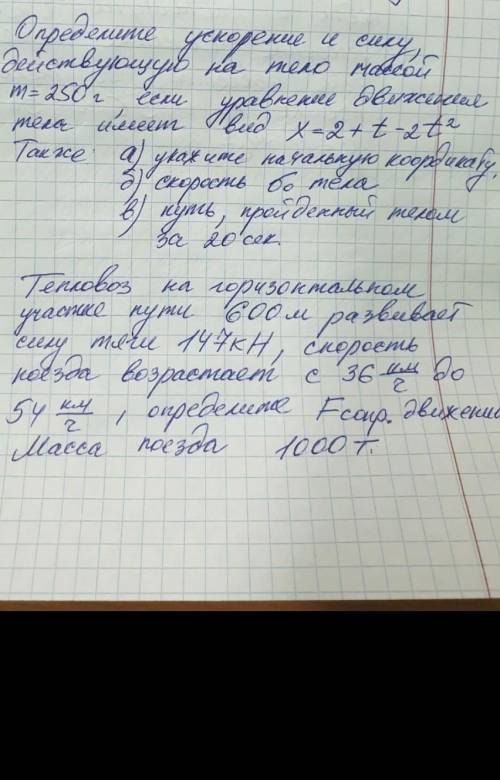 Определите ускорение и силу,
действующую на тело массой
m=250г если уравнение движения
тела имеет вид x=2+t-2t²
Также а) укажите начальную координату,
б) скорость v₀ тела
в) путь, пройденный телом
за 20 сек.
Тепловоз на горизонтальном
участке пути 600м развивает
силу тяги 147кН, скорость
поезда возрастает с 36 км/ч до
54 км/ч, определите Fсопр. движения
Масса поезда 1000 т.